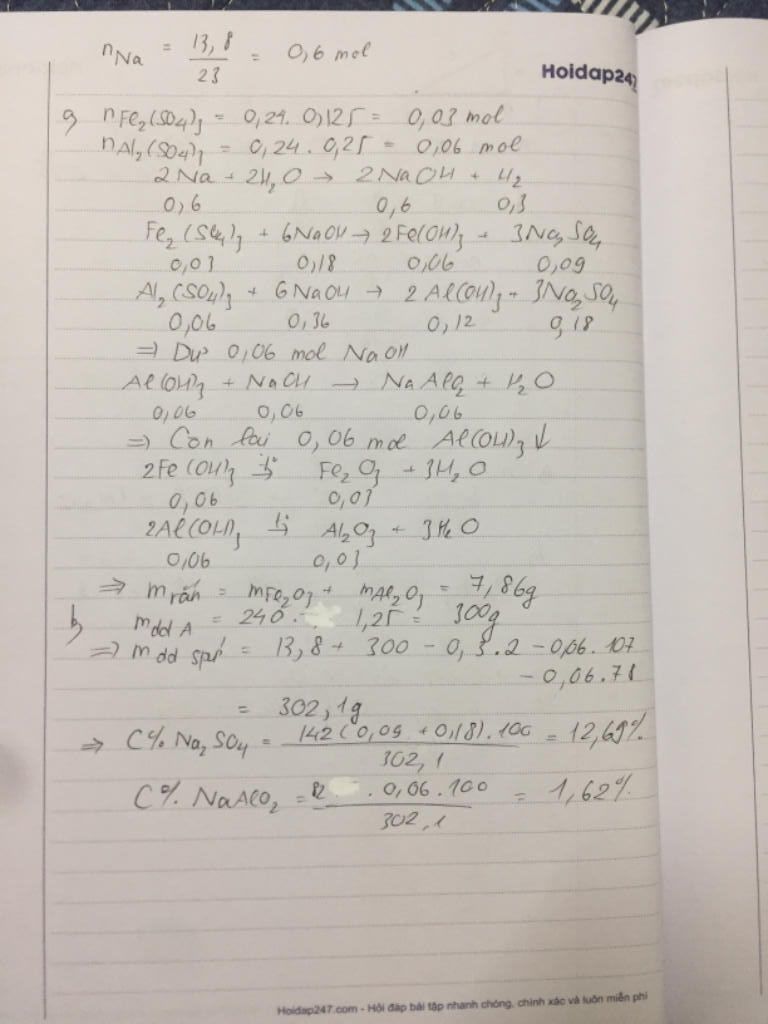 nNa = 13,8 / 23 = 0,6 mol
Hoidap247
a) nFe2(SO4)3 = 0,24 . 0,125 = 0,03 mol
nAl2(SO4)3 = 0,24 . 0,25 = 0,06 mol
2Na + 2H2O → 2NaOH + H2
0,6 0,6 0,3
Fe2(SO4)3 + 6NaOH → 2Fe(OH)3 + 3Na2SO4
0,03 0,18 0,06 0,09
Al2(SO4)3 + 6NaOH → 2Al(OH)3 + 3Na2SO4
0,06 0,36 0,12 0,18
⇒ Dư 0,06 mol NaOH
Al(OH)3 + NaOH → NaAlO2 + H2O
0,06 0,06 0,06
⇒ Còn lại 0,06 mol Al(OH)3↓
2Fe(OH)3 →t° Fe2O3 + 3H2O
0,06 0,03
2Al(OH)3 →t° Al2O3 + 3H2O
0,06 0,03
⇒ mrắn = mFe2O3 + mAl2O3 = 7,86g
b) mdd A = 240 . 1,25 = 300g
⇒ mdd spứ = 13,8 + 300 - 0,3.2 - 0,06.107
- 0,06.78
= 302,1g
⇒ C% Na2SO4 = 142(0,09 + 0,18).100 / 302,1 = 12,69%
C% NaAlO2 = 82 . 0,06.100 / 302,1 = 1,62%
Hoidap247.com - Hỏi đáp bài tập nhanh chóng, chính xác và luôn miễn phí